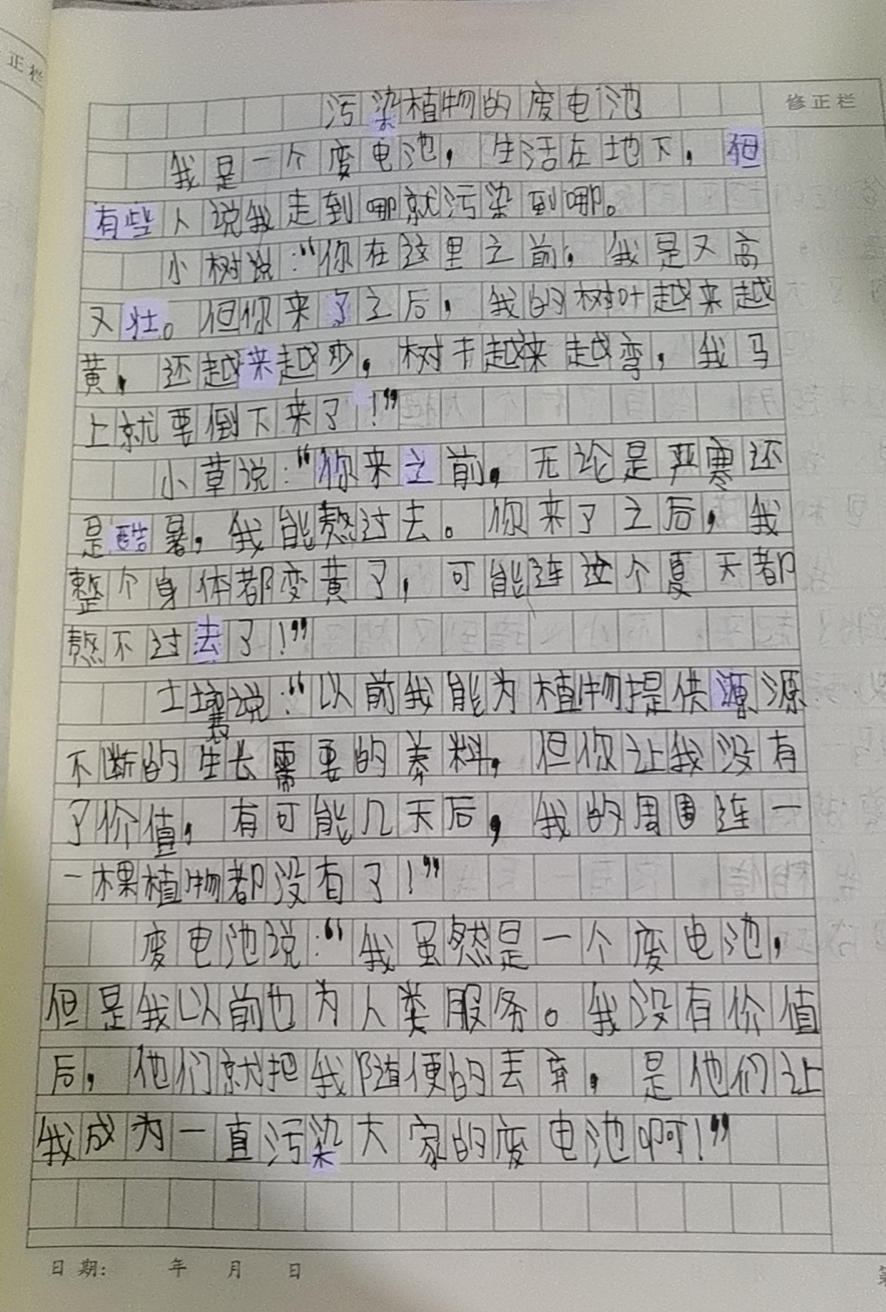 正栏
修正栏
污染植物的废电池
我是一个废电池，生活在地下，但
有些人说我走到哪就污染到哪。
小树说：“你在这里之前，我是又高
又壮。但你来了之后，我的树叶越来越
黄，还越来越少，树干越来越弯，我马
上就要倒下来了！”
小草说：“你来之前，无论是严寒还
是酷暑，我能熬过去。你来了之后，我
整个身体都变黄了，可能连这个夏天都
熬不过去了！”
土壤说：“以前我能为植物提供源源
不断的生长需要的养料，但你让我没有
了价值，有可能几天后，我的周围连一
一棵植物都没有了！”
废电池说：“我虽然是一个废电池，
但是我以前也为人类服务。我没有价值
后，他们就把我随便的丢弃，是他们让
我成为一直污染大家的废电池啊！”
日期： 年 月 日